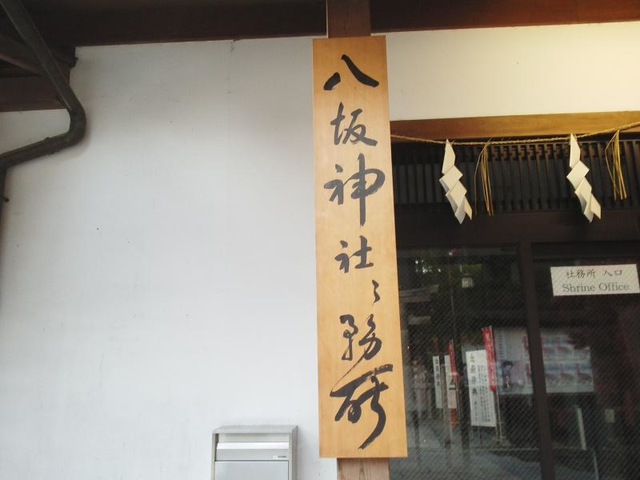 八坂神社々務所
社務所 入口
Shrine Office